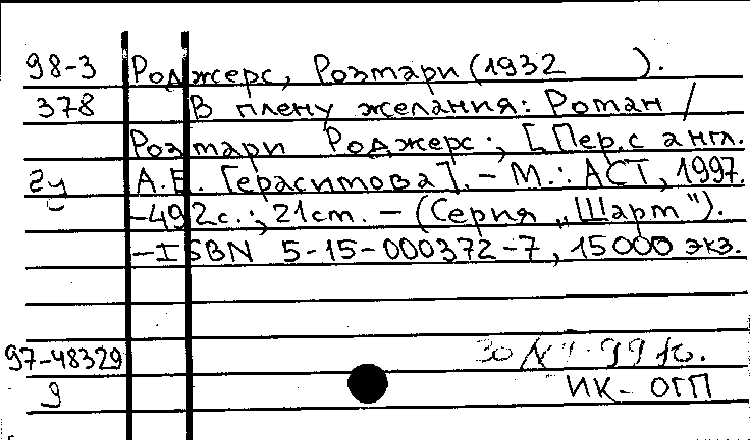 98-3 Роджерс, Розмари (1932 ).
378 В плену желания: Роман /
Розмари Роджерс ; [Пер. с англ.
2у А.Е. Герасимова]. – М.: АСТ, 1997.
– 492 с.; 21 см. – (Серия „Шарм").
– ISBN 5-15-000372-7, 15000 экз.
97-48329
9 ИК- ОГП